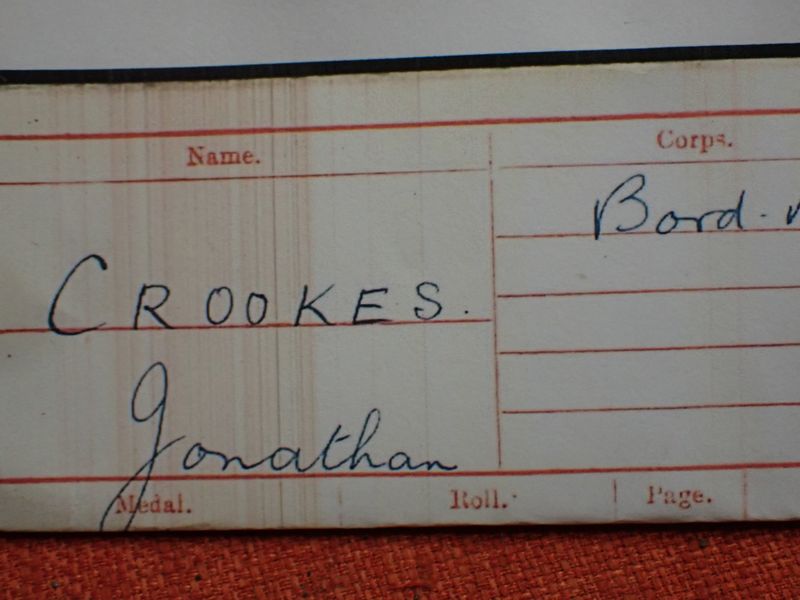 Name. Corps.
Bord.
CROOKES.
Jonathan
Medal. Roll. Page.